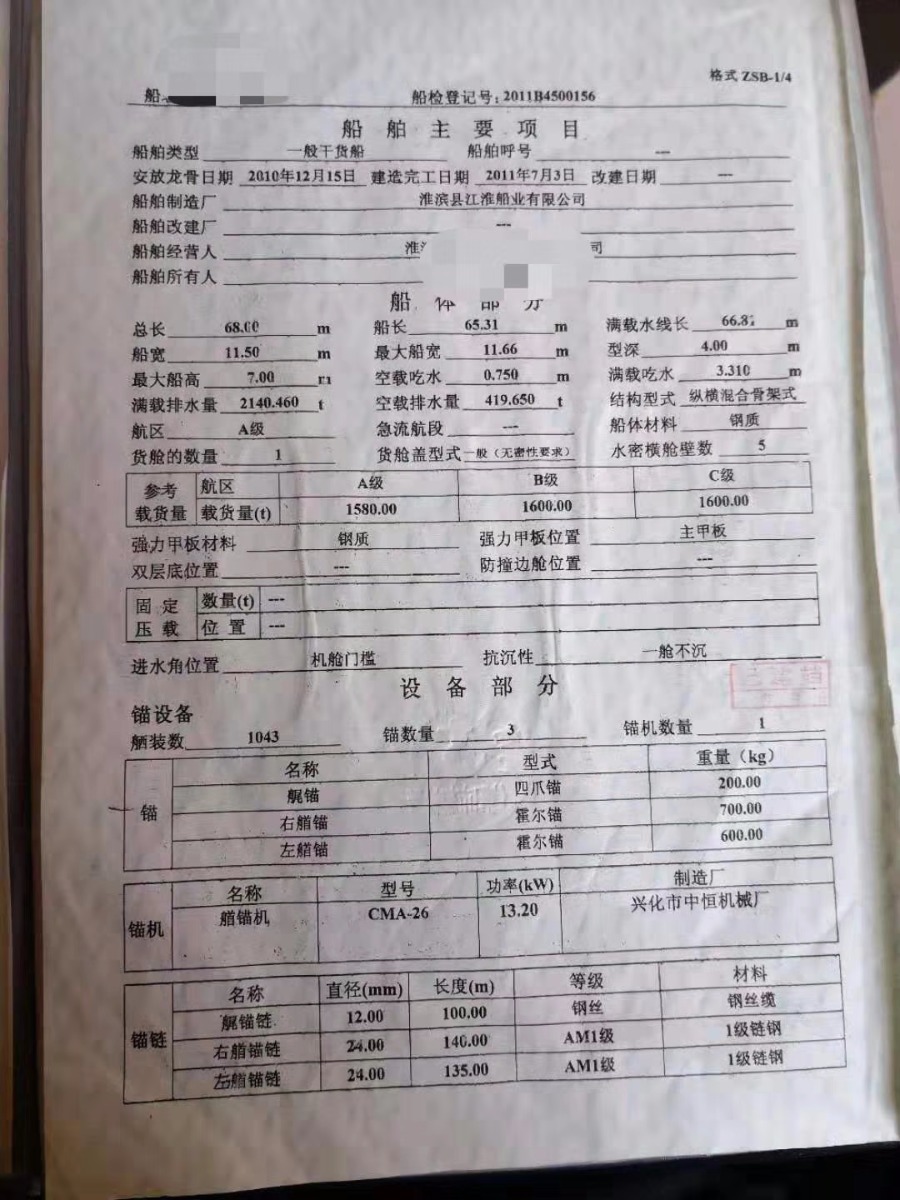 格式 ZSB-1/4
船 船检登记号:2011B4500156
船舶主要项目
船舶类型 一般干货船 船舶呼号 ---
安放龙骨日期 2010年12月15日 建造完工日期 2011年7月3日 改建日期 ---
船舶制造厂 淮滨县江淮船业有限公司
船舶改建厂 ---
船舶经营人 淮 司
船舶所有人
船体部分
总长 68.00 m 船长 65.31 m 满载水线长 66.8 m
船宽 11.50 m 最大船宽 11.66 m 型深 4.00 m
最大船高 7.00 m 空载吃水 0.750 m 满载吃水 3.310 m
满载排水量 2140.460 t 空载排水量 419.650 t 结构型式 纵横混合骨架式
航区 A级 急流航段 --- 船体材料 钢质
货舱的数量 1 货舱盖型式 一般(无密性要求) 水密横舱壁数 5
参考 航区 A级 B级 C级
载货量 载货量(t) 1580.00 1600.00 1600.00
强力甲板材料 钢质 强力甲板位置 主甲板
双层底位置 --- 防撞边舱位置 ---
固定 数量(t) ---
压载 位置 ---
进水角位置 机舱门槛 抗沉性 一舱不沉
设备部分
锚设备
舾装数 1043 锚数量 3 锚机数量 1
锚 名称 型式 重量(kg)
艉锚 四爪锚 200.00
右艏锚 霍尔锚 700.00
左艏锚 霍尔锚 600.00
锚机 名称 型号 功率(kW) 制造厂
艏锚机 CMA-26 13.20 兴化市中恒机械厂
锚链 名称 直径(mm) 长度(m) 等级 材料
艉锚链 12.00 100.00 钢丝 钢丝缆
右艏锚链 24.00 140.00 AM1级 1级链钢
左艏锚链 24.00 135.00 AM1级 1级链钢